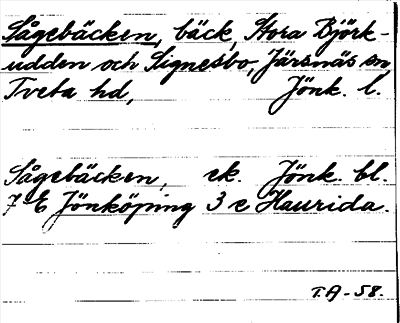 Sågebäcken, bäck, Stora Björk-
udden och Signesbo, Järsnäs sn
Tveta hd, Jönk. l.
Sågebäcken, ek. Jönk. bl.
7 E Jönköping 3 e Haurida.
T.A-58.